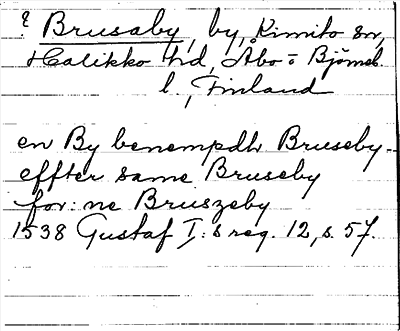 ? Brusaby, by, Kimito sn,
Halikko hd, Åbo o Björneb.
l., Finland
en By benempdh Bruseby -
effter same Bruseby
for:ne Bruszeby
1538 Gustaf I:s reg. 12, s. 57.